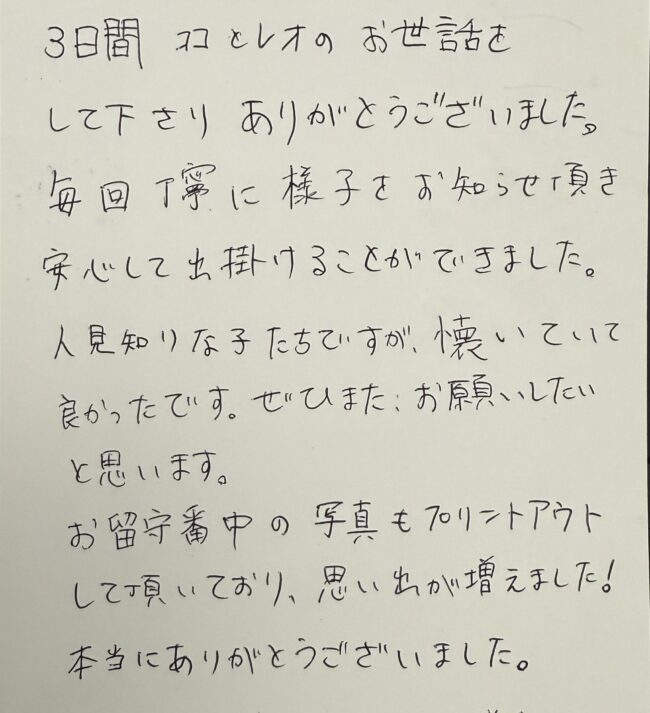 3日間 ココとレオの お世話を
して下さり ありがとうございました。
毎回 丁寧に 様子を お知らせ頂き
安心して 出掛けることができました。
人見知りな子たちですが、懐いていて
良かったです。ぜひまた、お願いしたい
と思います。
お留守番中の 写真もプリントアウト
して頂いており、思い出が増えました!
本当にありがとうございました。